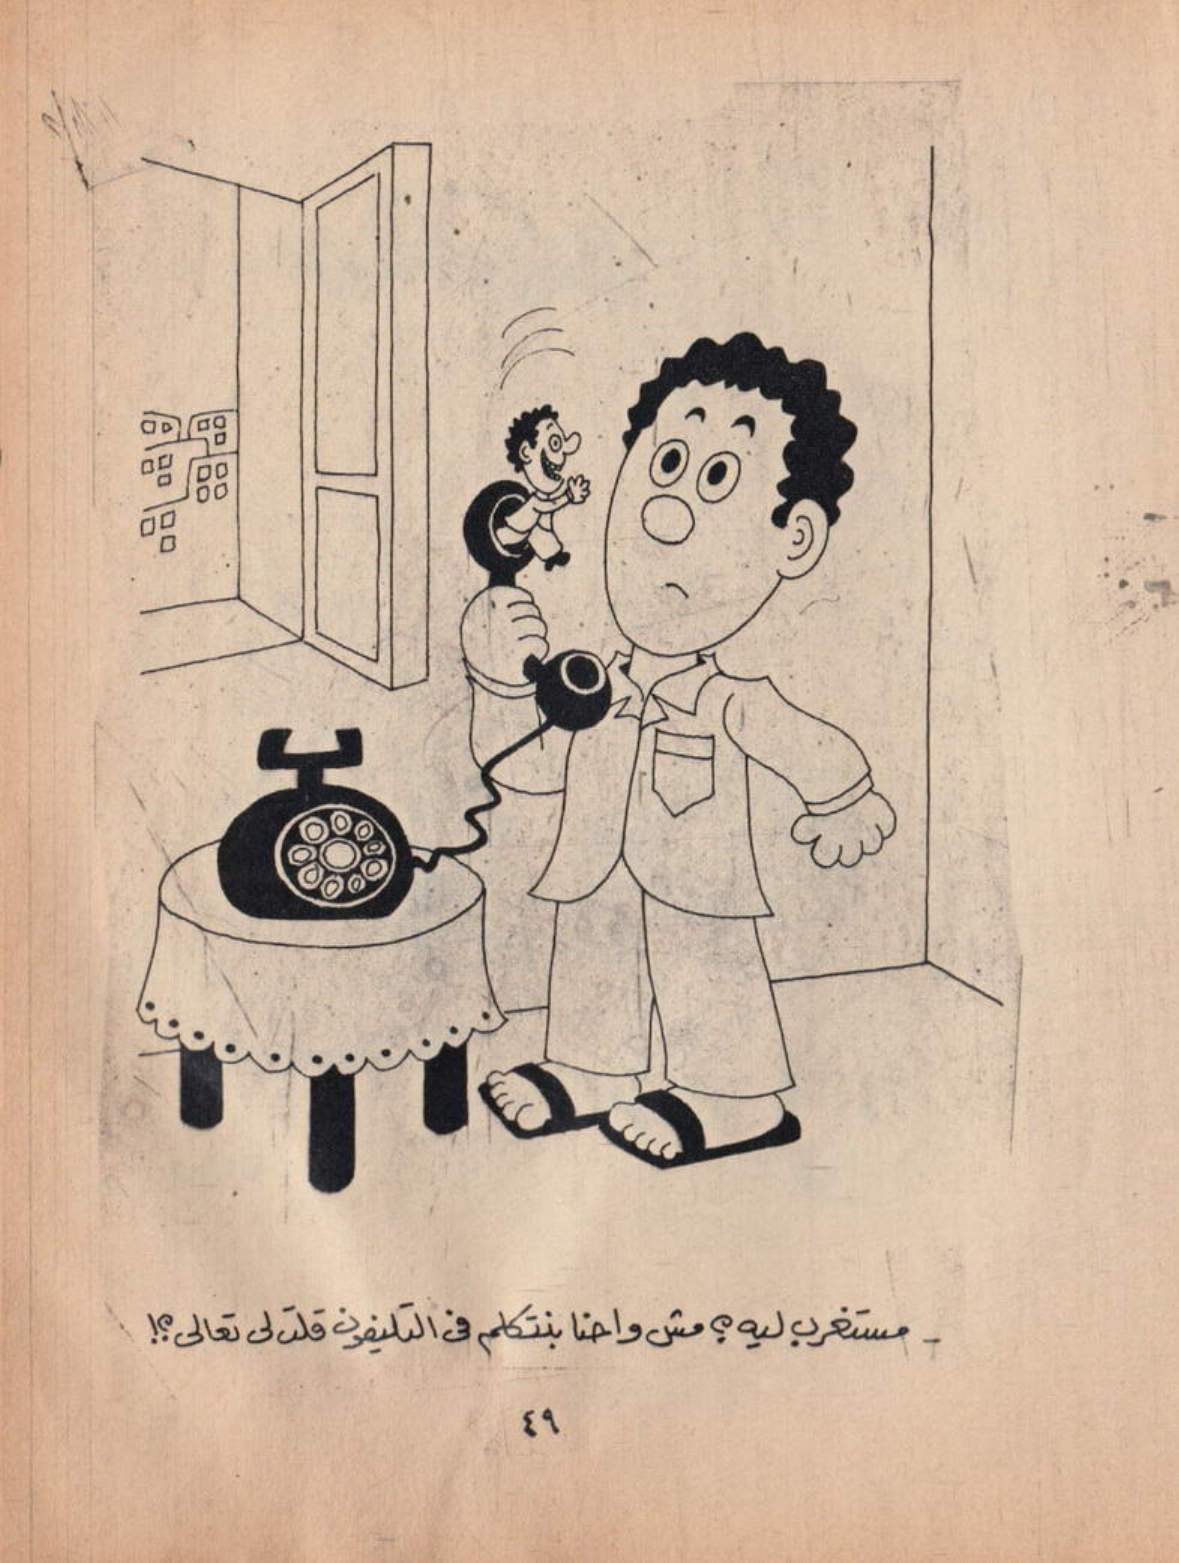 - مستغرب ليه ؟ مش واحنا بنتكلم فى التليفون قلت لى تعالى ؟!
٤٩